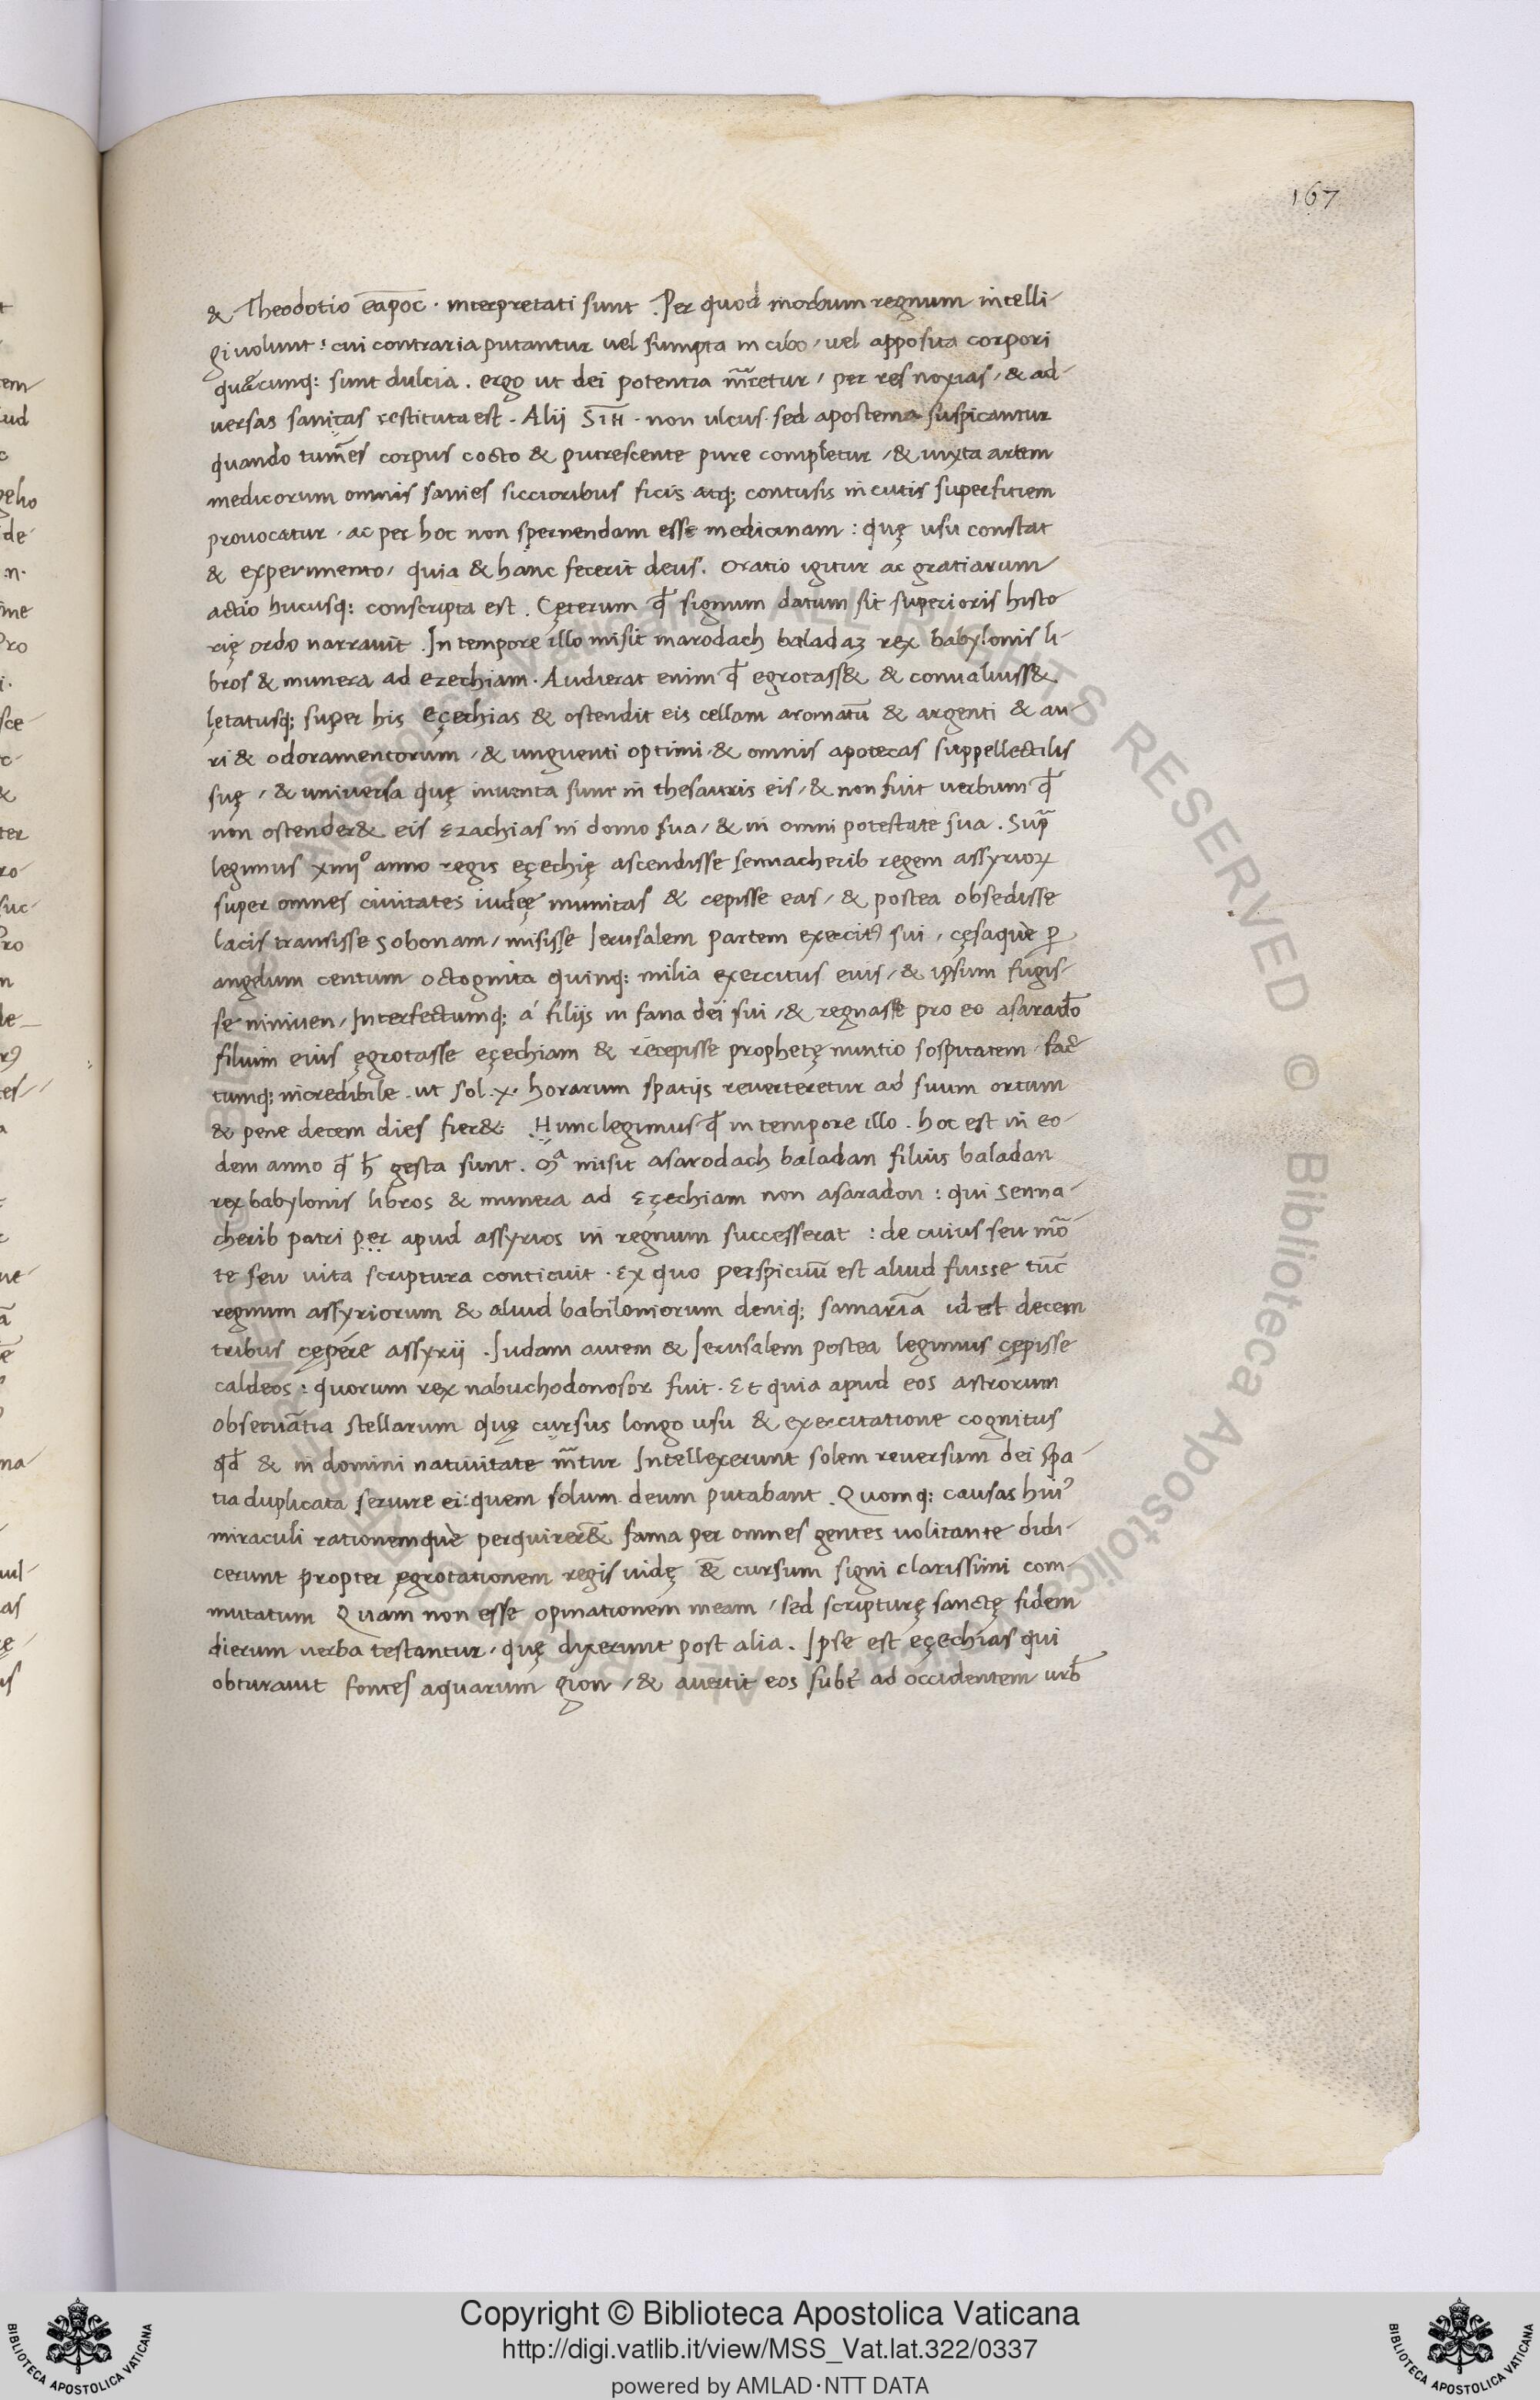 167
& Theodotio eapoc · interpretati sunt . Per quod morbum regnum intelli-
gi uolunt : cui contraria putantur uel sumpta in cibo / uel apposita corpori
quæcunq; sunt dulcia . ergo ut dei potentia mr̃aretur / per res noxias / & ad-
uersas sanitas restituta est . Alij SIH · non ulcus sed apostema suspicantur
quando tum̃es corpus cocto & putrescente pure completur / & iuxta artem
medicorum omnis sanies siccioribus ficis atq; contusis in cutis superfitiem
prouocatur · ac per hoc non spernendam esse medicinam : quę usu constat
& experimento / quia & hanc fecerit deus . Oratio igitur ac gratiarum
actio hucusq; conscripta est . Cęterum ꝙ signum datum sit superioris histo
rię ordo narrauit . In tempore illo misit marodach baladaz rex babylonis li-
bros & munera ad ezechiam . Audierat enim ꝙ egrotass& & conualuiss&
lętatusq; super his Eçechias & ostendit eis cellam aromatũ & argenti & au-
ri & odoramentorum / & unguenti optimi / & omnis apotecas suppellectilis
suę / & universa quę inuenta sunt in thesauris eis / & non fuit uerbum ꝙ
non ostender& eis ezachias in domo sua / & in omni potestate sua . Supᷓ
legimus xiiijº anno regis eçechię ascendisse sennacherib regem assyrioꝝ
super omnes ciuitates iudeę munitas & cepisse eas / & postea obsedisse
lacis transisse sobonam / misisse Jerusalem partem exercitꝰ sui / cęsaque p̱
angelum centum octoginta quinq; milia exercitus euis / & ipsum fugis-
se niniuen / Interfectumq; á filijs in fana dei sui / & regnasse pro eo asarado̅
filium eius ęgrotasse eçechiam & recepisse prophetę nuntio sospitatem fac-
tumq; incredibile . ut sol . x . horarum spatijs reuerteretur ad suum ortum
& pene decem dies fier& . Hunc legimus ꝙ in tempore illo . hoc est in eo-
dem anno ꝙ h̅ gesta sunt . mͣ misit asarodach baladan filius baladan
rex babylonis libros & munera ad Eçechiam non asaradon : qui senna-
cherib patri per apud assyrios in regnum successerat : de cuius seu mõ-
te seu uita scriptura conticuit . Ex quo perspicuũ est aliud fuisse tũc
regnum assyriorum & aliud babiloniorum deniq; samariã id est decem
tribus cępere assyrij . Judam autem & Jerusalem postea legimus cępisse
caldeos : quorum rex nabuchodonosor fuit . Et quia apud eos astrorum
obseruãtia stellarum quę cursus longo usu & exercitatione cognitus
qđ & in domini natiuitate mr̃tur Intellexerunt solem reuersum dei spa-
tia duplicata seruire ei : quem solum deum putabant . Quomq; causas huiꝰ
miraculi rationemque perquirer& fama per omnes gentes uolitante didi-
cerunt propter ęgrotationem regis uidę & cursum signi clarissimi com-
mutatum Quam non esse opinationem meam / sed scripturę sanctę fidem
dierum uerba testantur / quę dixerunt post alia . Ipse est eçechias qui
obturauit fontes aquarum gion / & auertit eos subt̛ ad occidentem urb̅
Copyright © Biblioteca Apostolica Vaticana
http://digi.vatlib.it/view/MSS_Vat.lat.322/0337
powered by AMLAD·NTT DATA